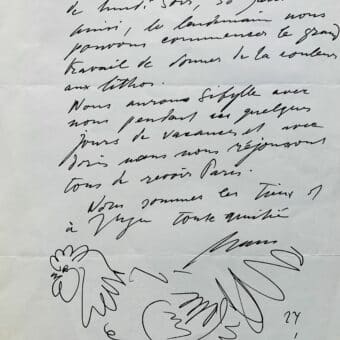 de lundi soir, 30
ainsi, le lendemain nous
pouvons commencer le grand
travail de donner de la couleur
aux lithos.
Nous aurons Sibylle avec
nous pendant ces quelques
jours de vacances et avec
Doris nous nous réjouissons
tous de revoir Paris.
Nous sommes les tiens
à toute amitié
Hans
27